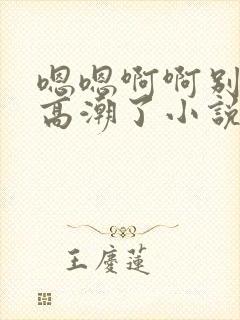 嗯嗯啊啊别
高潮了小説
王慶蓮